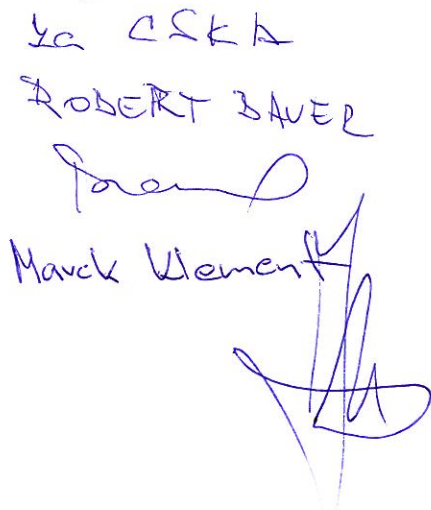 za CSKA
ROBERT BAUER
Marek Klement